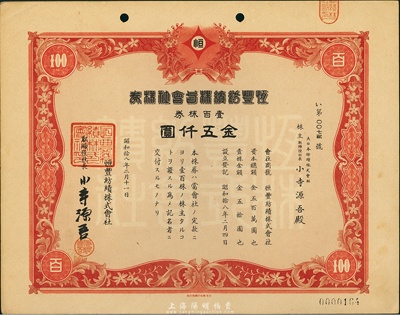 恒
100
百
百
100
恒豐紡績株式會社株券
壹百株券
金五仟圓
い第 00 號
株主
小寺源吾殿
會社商號 恒豐紡績株式會社
資本總額 金五百萬圓也
壹株金額 金五拾圓也
設立登記 昭和拾八年三月四日
本株券ハ當會社ノ定款ニ
ヨリ壹百株ノ株主タルコ
トヲ證スル爲メ記名者ニ
交付スルモノナリ
昭和拾八年三月十一日
恒豐紡績株式會社
小寺源吾
百
100
百
100
0000164
上海陽明拍賣